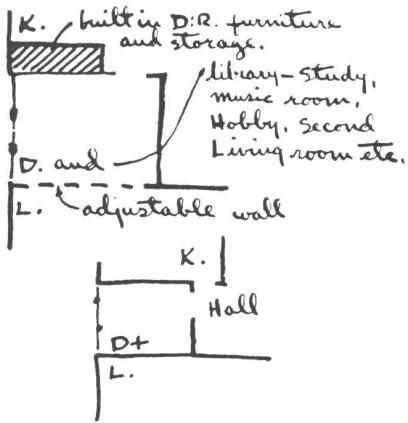 K. built in D.R. furniture
and storage.
library-study,
music room,
Hobby, second
Living room etc.
D. and
L. adjustable wall
K.
Hall
D+
L.